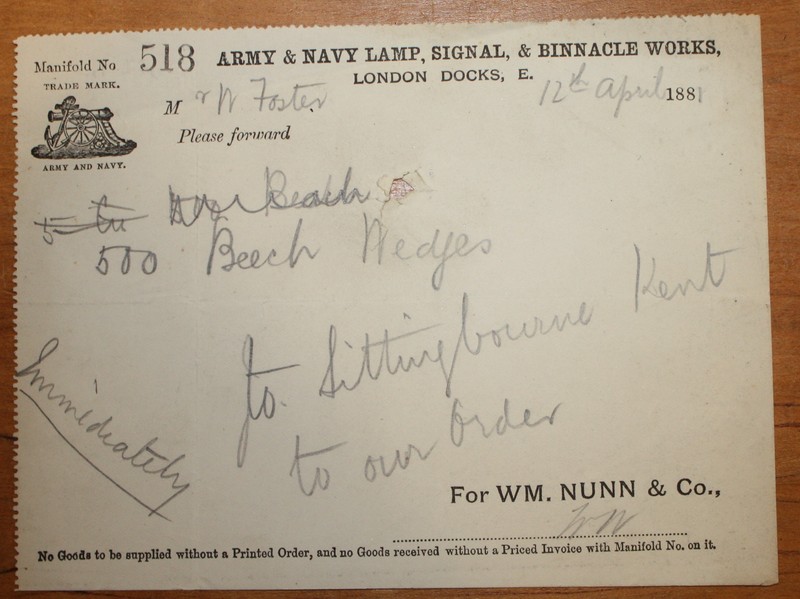 Manifold No 518
ARMY & NAVY LAMP, SIGNAL, & BINNACLE WORKS,
LONDON DOCKS, E.
TRADE MARK.
ARMY AND NAVY.
Mr W Foster
12th April 1881
Please forward
Beech
500 Beech Wedges
to Sittingbourne Kent
to our Order
Immediately
For WM. NUNN & Co.,
WN
No Goods to be supplied without a Printed Order, and no Goods received without a Priced Invoice with Manifold No. on it.